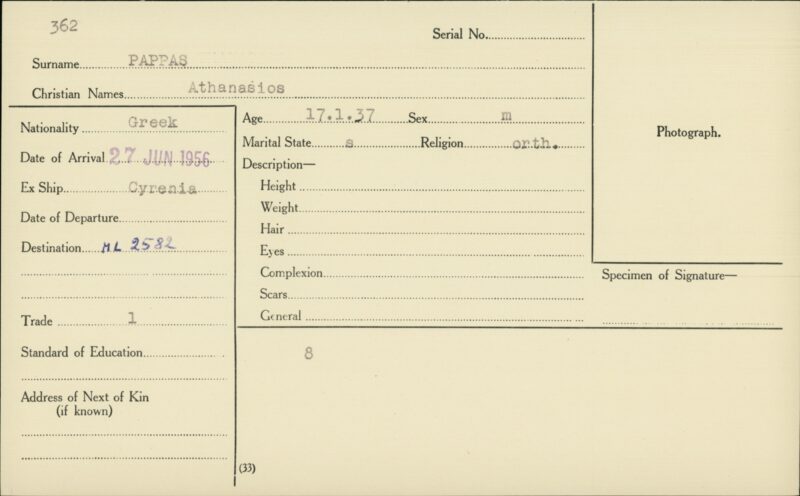 362
Serial No.
Surname PAPPAS
Christian Names Athanasios
Nationality Greek
Date of Arrival 27 JUN 1956
Ex Ship Cyrenia
Date of Departure
Destination ML 2582
Trade 1
Standard of Education
Address of Next of Kin
(if known)
Age 17.1.37 Sex m
Marital State s Religion orth.
Description—
Height
Weight
Hair
Eyes
Complexion
Scars
General
8
(33)
Photograph.
Specimen of Signature—